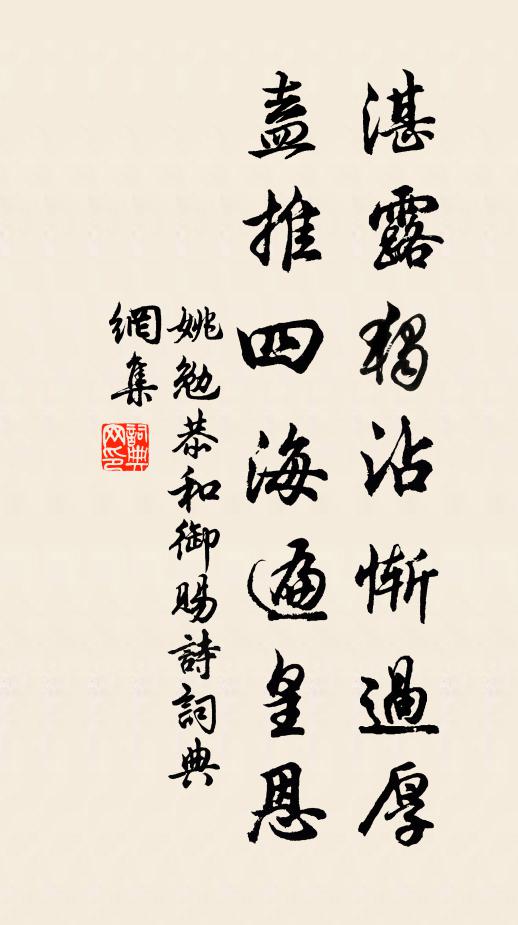 湛露獨沾慚過厚
盍推四海遍皇恩
姚勉恭和御賜詩詞典
網集
詞典
网印